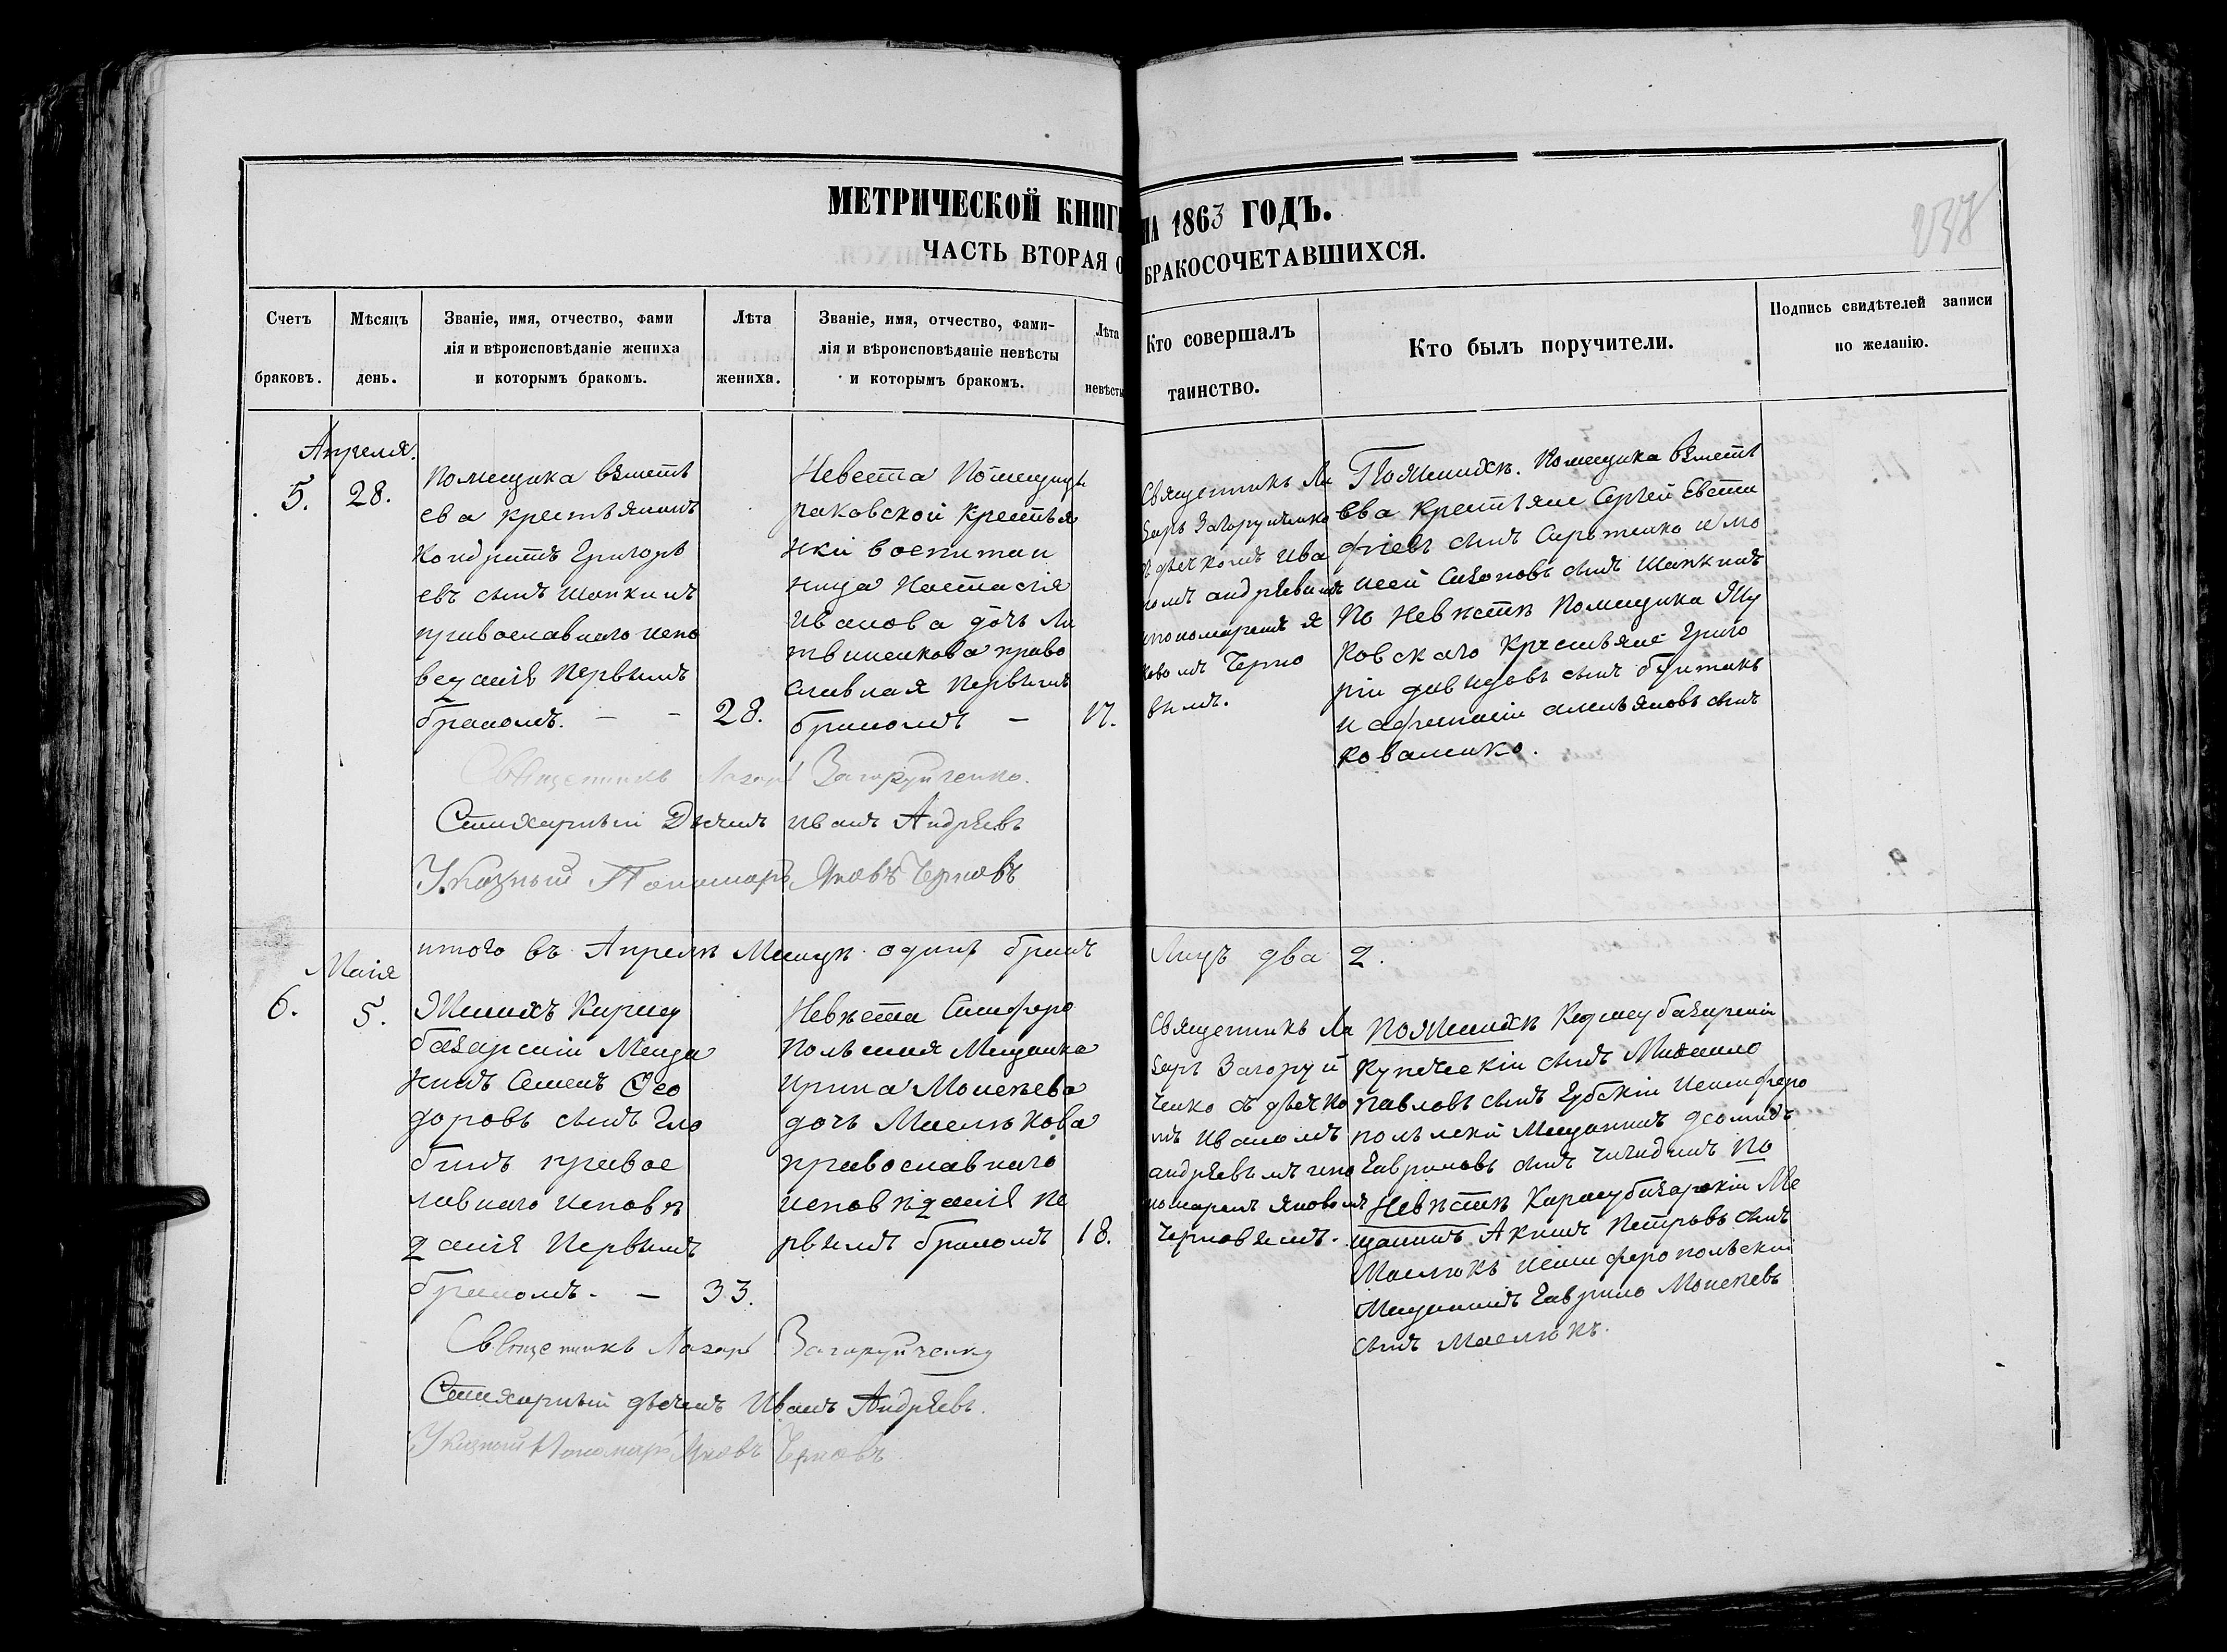 МЕТРИЧЕСКОЙ КНИГИ НА 1863 ГОДЪ.
ЧАСТЬ ВТОРАЯ О БРАКОСОЧЕТАВШИХСЯ.
Счетъ браковъ.
Мѣсяцъ день.
Званіе, имя, отчество, фами
лія и вѣроисповѣданіе жениха
и которымъ бракомъ.
Лѣта жениха.
Званіе, имя, отчество, фами-
лія и вѣроисповѣданіе невѣсты
и которымъ бракомъ.
Лѣта невѣсты
Кто совершалъ
таинство.
Кто былъ поручители.
Подпись свидѣтелей записи
по желанію.
Апреля.
5. 28.
Помещика
ева крестьянинъ
Кондратъ Григорь
евъ сынъ Шапкинъ
православнаго испо
веданія первымъ
бракомъ. — — 28.
Невеста Помещицы
крестья
нки воспитан
ница Настасія
Иванова дочь Ли
твиненкова право
славная первымъ
бракомъ — 17.
Священникъ Ла
зарь Загоруйченко
съ дьячкомъ Ива
номъ андрѣевымъ
ипономаремъ Я
ковомъ Черно
вымъ.
По Женихѣ. Помещика
ева Крестьяне Сергѣй Евста
фіевъ сынъ Сиротенко и Мо
исей Сазоновъ сынъ Шапкинъ
По Невѣстѣ Помещика Жу
ковскаго Крестьяне Григо
рій давидовъ сынъ
и афанасій амельяновъ сынъ
Коваленко.
Священникъ Лазарь Загоруйченко.
Стихарный Дьячекъ Иванъ Андрѣевъ
Указный Пономарь Яковъ Черновъ
итого въ Апрелѣ Месяцѣ одинъ бракъ Лицъ два 2.
Маія
6. 5.
Женихъ Карасу
базарскій Меща
нинъ Семенъ Ѳео
доровъ сынъ Гло
бинъ правос
лавнаго исповѣ
данія Первымъ
бракомъ. — 33.
Невѣста Симферо
польская Мещанка
Ирина Моисѣева
дочь Маслюкова
православнаго
исповѣданія пе
рвымъ бракомъ 18.
Священникъ Ла
зарь Загоруй
ченко съ дьячко
мъ Иваномъ
андрѣевымъ ипо
номаремъ Яковомъ
Черновымъ.
По Женихѣ Карасубазарскій
купеческій сынъ Михаило
Павловъ сынъ Губскій исимферо
польскій Мещанинъ
Гавриловъ сынъ По
Невѣстѣ Карасубазарскій Ме
щанинъ Акимъ Петровъ сынъ
Маслюкъ исимферопольскій
Мещанинъ Гаврило Моисѣевъ
сынъ Маслюкъ.
Священникъ Лазарь Загоруйченко
Стихарный дьячекъ Иванъ Андрѣевъ.
Указный Пономарь Яковъ Черновъ